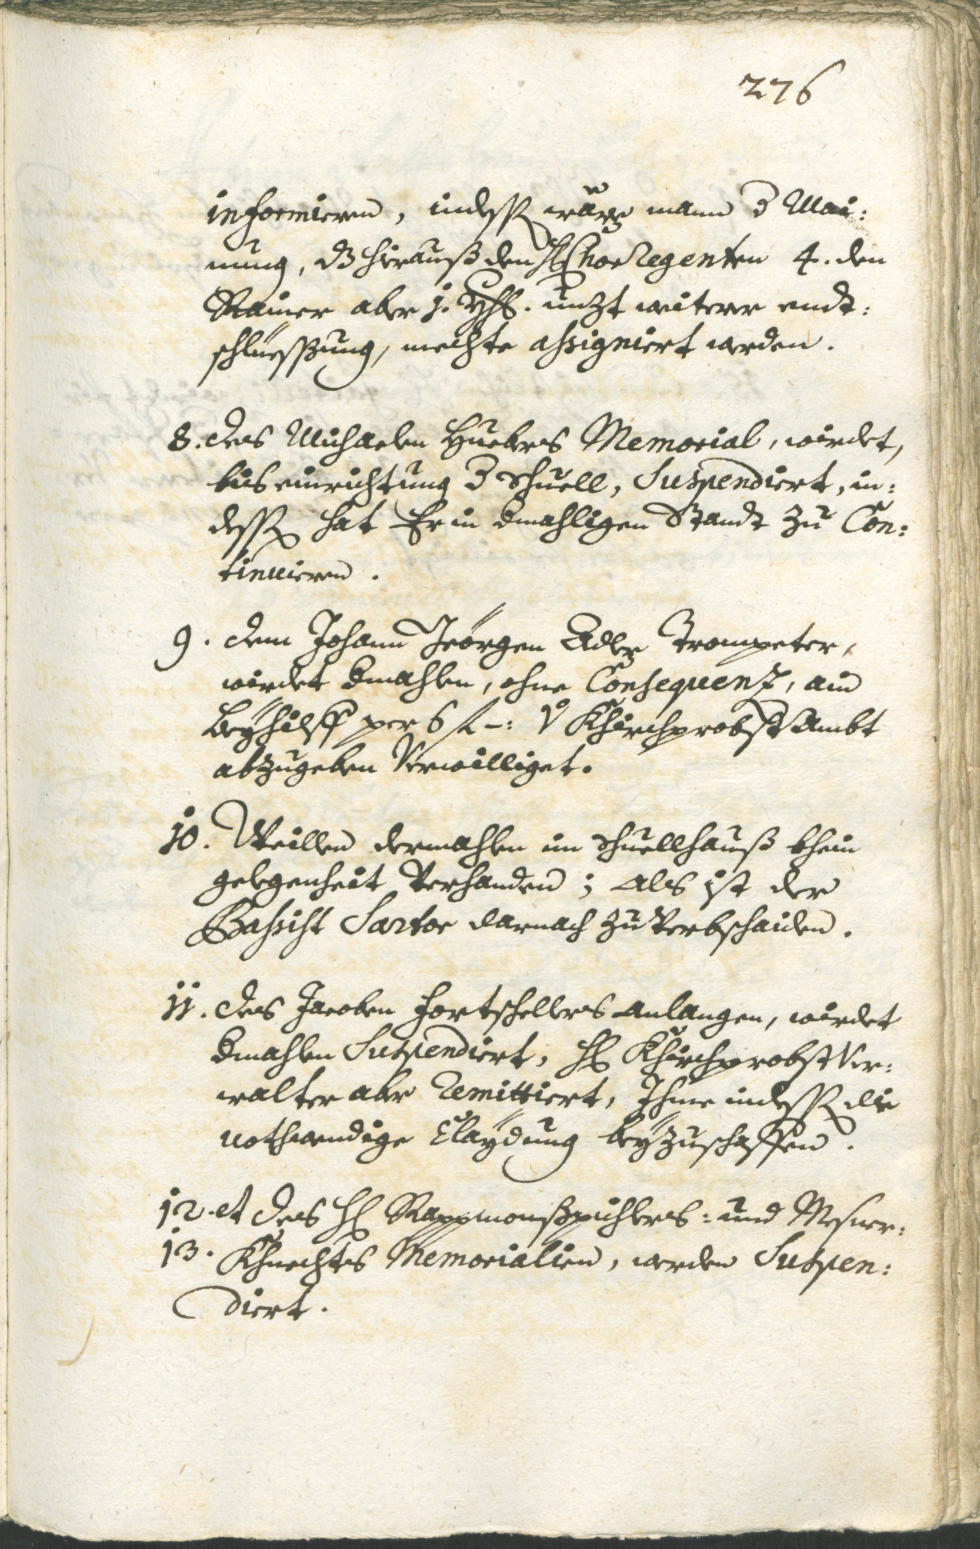 276
informieren, indessen wäre mann d Mai:
nung, dß hierauß den H Chor Regenten 4. den
Rainer aber j. unzt weiterer endt:
schliessung, mechte assigniert werden.
8. des Michaelen Huebers Memorial, wirdet,
bis einrichtung d Schuell, Suspendiert, in:
dessen hat Er in dmahligen Standt zu Con:
tinuieren.
9. dem Johann Jeörgen Adler Trompeter,
wirdet dmahlen, ohne Consequenz, ain
Beÿhilff per 6 f –: v Khirchprobst Ambt
abzugeben Verwilliget.
10. Weillen dermahlen im Schuellhauß khein
gelegenheit Verhanden; als ist der
Bassist Sartor darnach zu Verbschaiden.
11. des Jacoben Fortschellers anlangen, wirdet
dmahlen Suspendiert, H Khirchprobst Ver:
walter aber Remittiert, Ihme indessen die
nothwendige Claÿdung beÿzuschaffen.
12. et des H : und Mesner:
13. Khnechts Memorialien, werden Suspen:
diert.